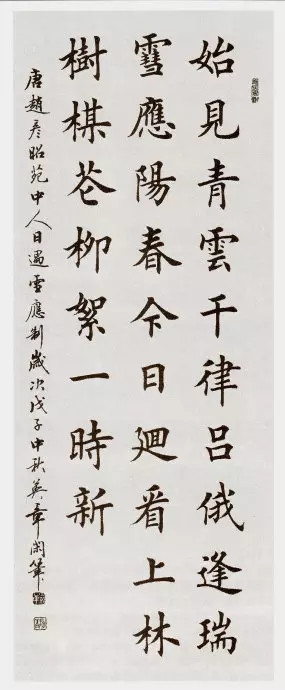 始見青雲干律呂俄逢瑞
雪應陽春今日廻看上林
樹楳花柳絮一時新
唐趙彥昭苑中人日遇雪應制歲次戊子中秋英章閑筆